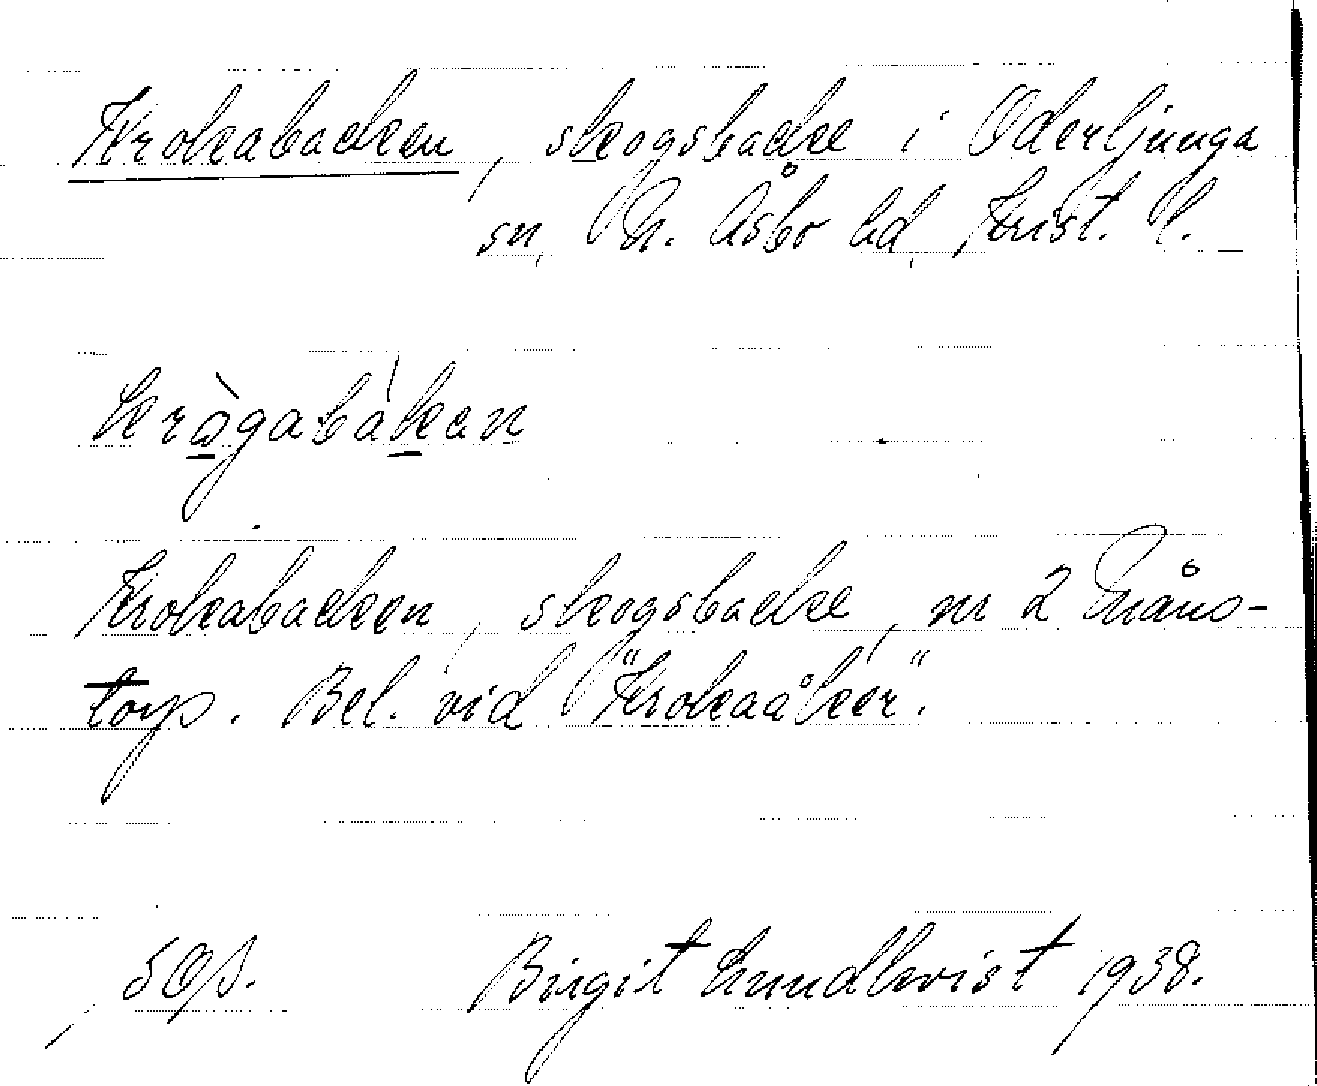 Krokabacken, skogsbacke i Oderljunga
sn, N. Åsbo hd, Krist. l.
krågabáken
Krokabacken, skogsbacke, nr 2 Måns-
torp. Bel. vid "Krokaåker".
Birgit Lundkvist 1938.